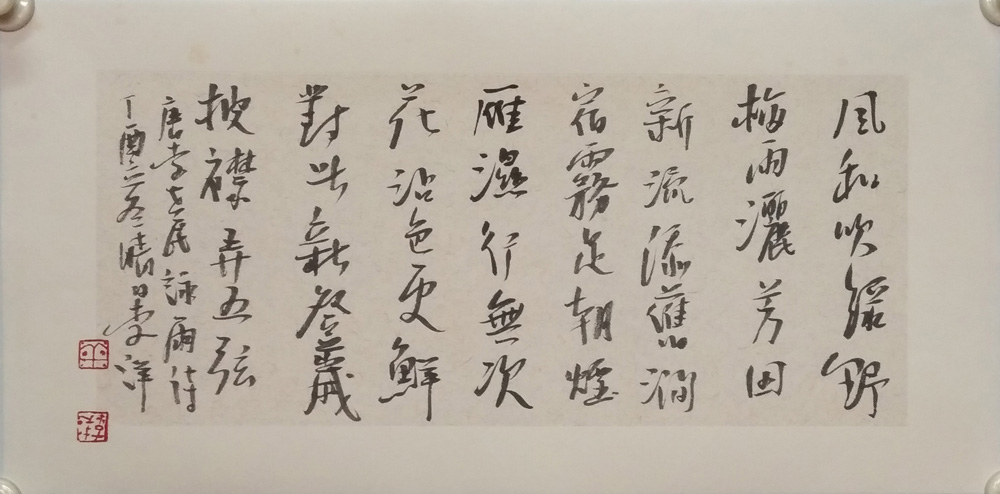 風和吹綠野
梅雨灑芳田
新流添舊澗
宿霧足朝煙
雁濕行無次
花沾色更鮮
對此登歲
披襟弄五弦
唐李世民詠雨詩
丁酉李洋